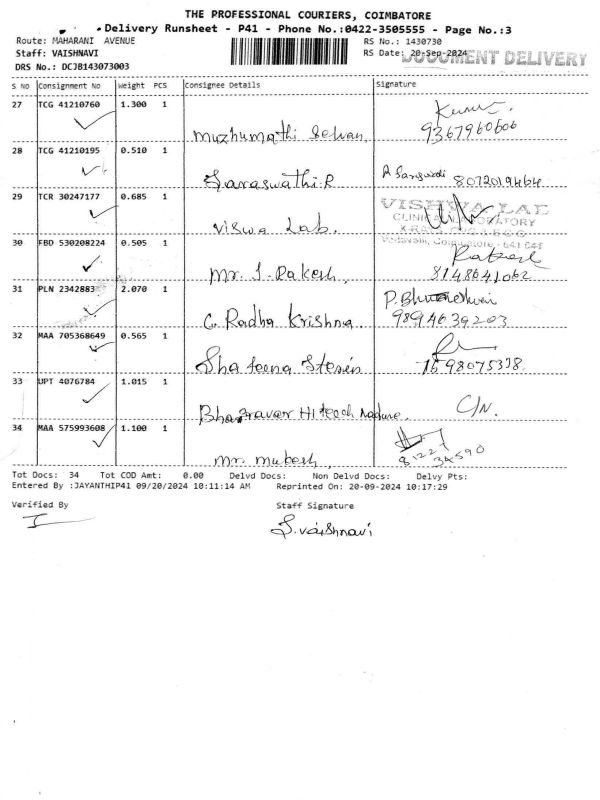 THE PROFESSIONAL COURIERS, COIMBATORE
Delivery Runsheet - P41 - Phone No.:0422-3505555 - Page No.:3
Route: MAHARANI AVENUE
RS No.: 1430730
Staff: VAISHNAVI
RS Date: 20-Sep-2024
DOCUMENT DELIVERY
DRS No.: DCJB143073003
S No Consignment No Weight PCS Consignee Details Signature
27 TCG 41210760 1.300 1
Muzhumathi Selvan 9367960606
28 TCG 41210195 0.510 1
Saraswathi.R 8072019464
29 TCR 30247177 0.685 1
VISHWA LAB
CLINICAL LABORATORY
Viswa Lab.
30 FBD 530208224 0.505 1
Coimbatore - 641 041
Rakesh
Mr. J. Rakesh, 8148641062
31 PLN 2342883 2.070 1
P. Bhuvaneshwari
G. Radha Krishna 9894639203
32 MAA 705368649 0.565 1
75 98075338
33 UPT 4076784 1.015 1
C/N.
34 MAA 575993608 1.100 1
Mr. Mukesh, 81227 34590
Tot Docs: 34 Tot COD Amt: 0.00 Delvd Docs: Non Delvd Docs: Delvy Pts:
Entered By :JAYANTHIP41 09/20/2024 10:11:14 AM Reprinted On: 20-09-2024 10:17:29
Verified By Staff Signature
S. Vaishnavi